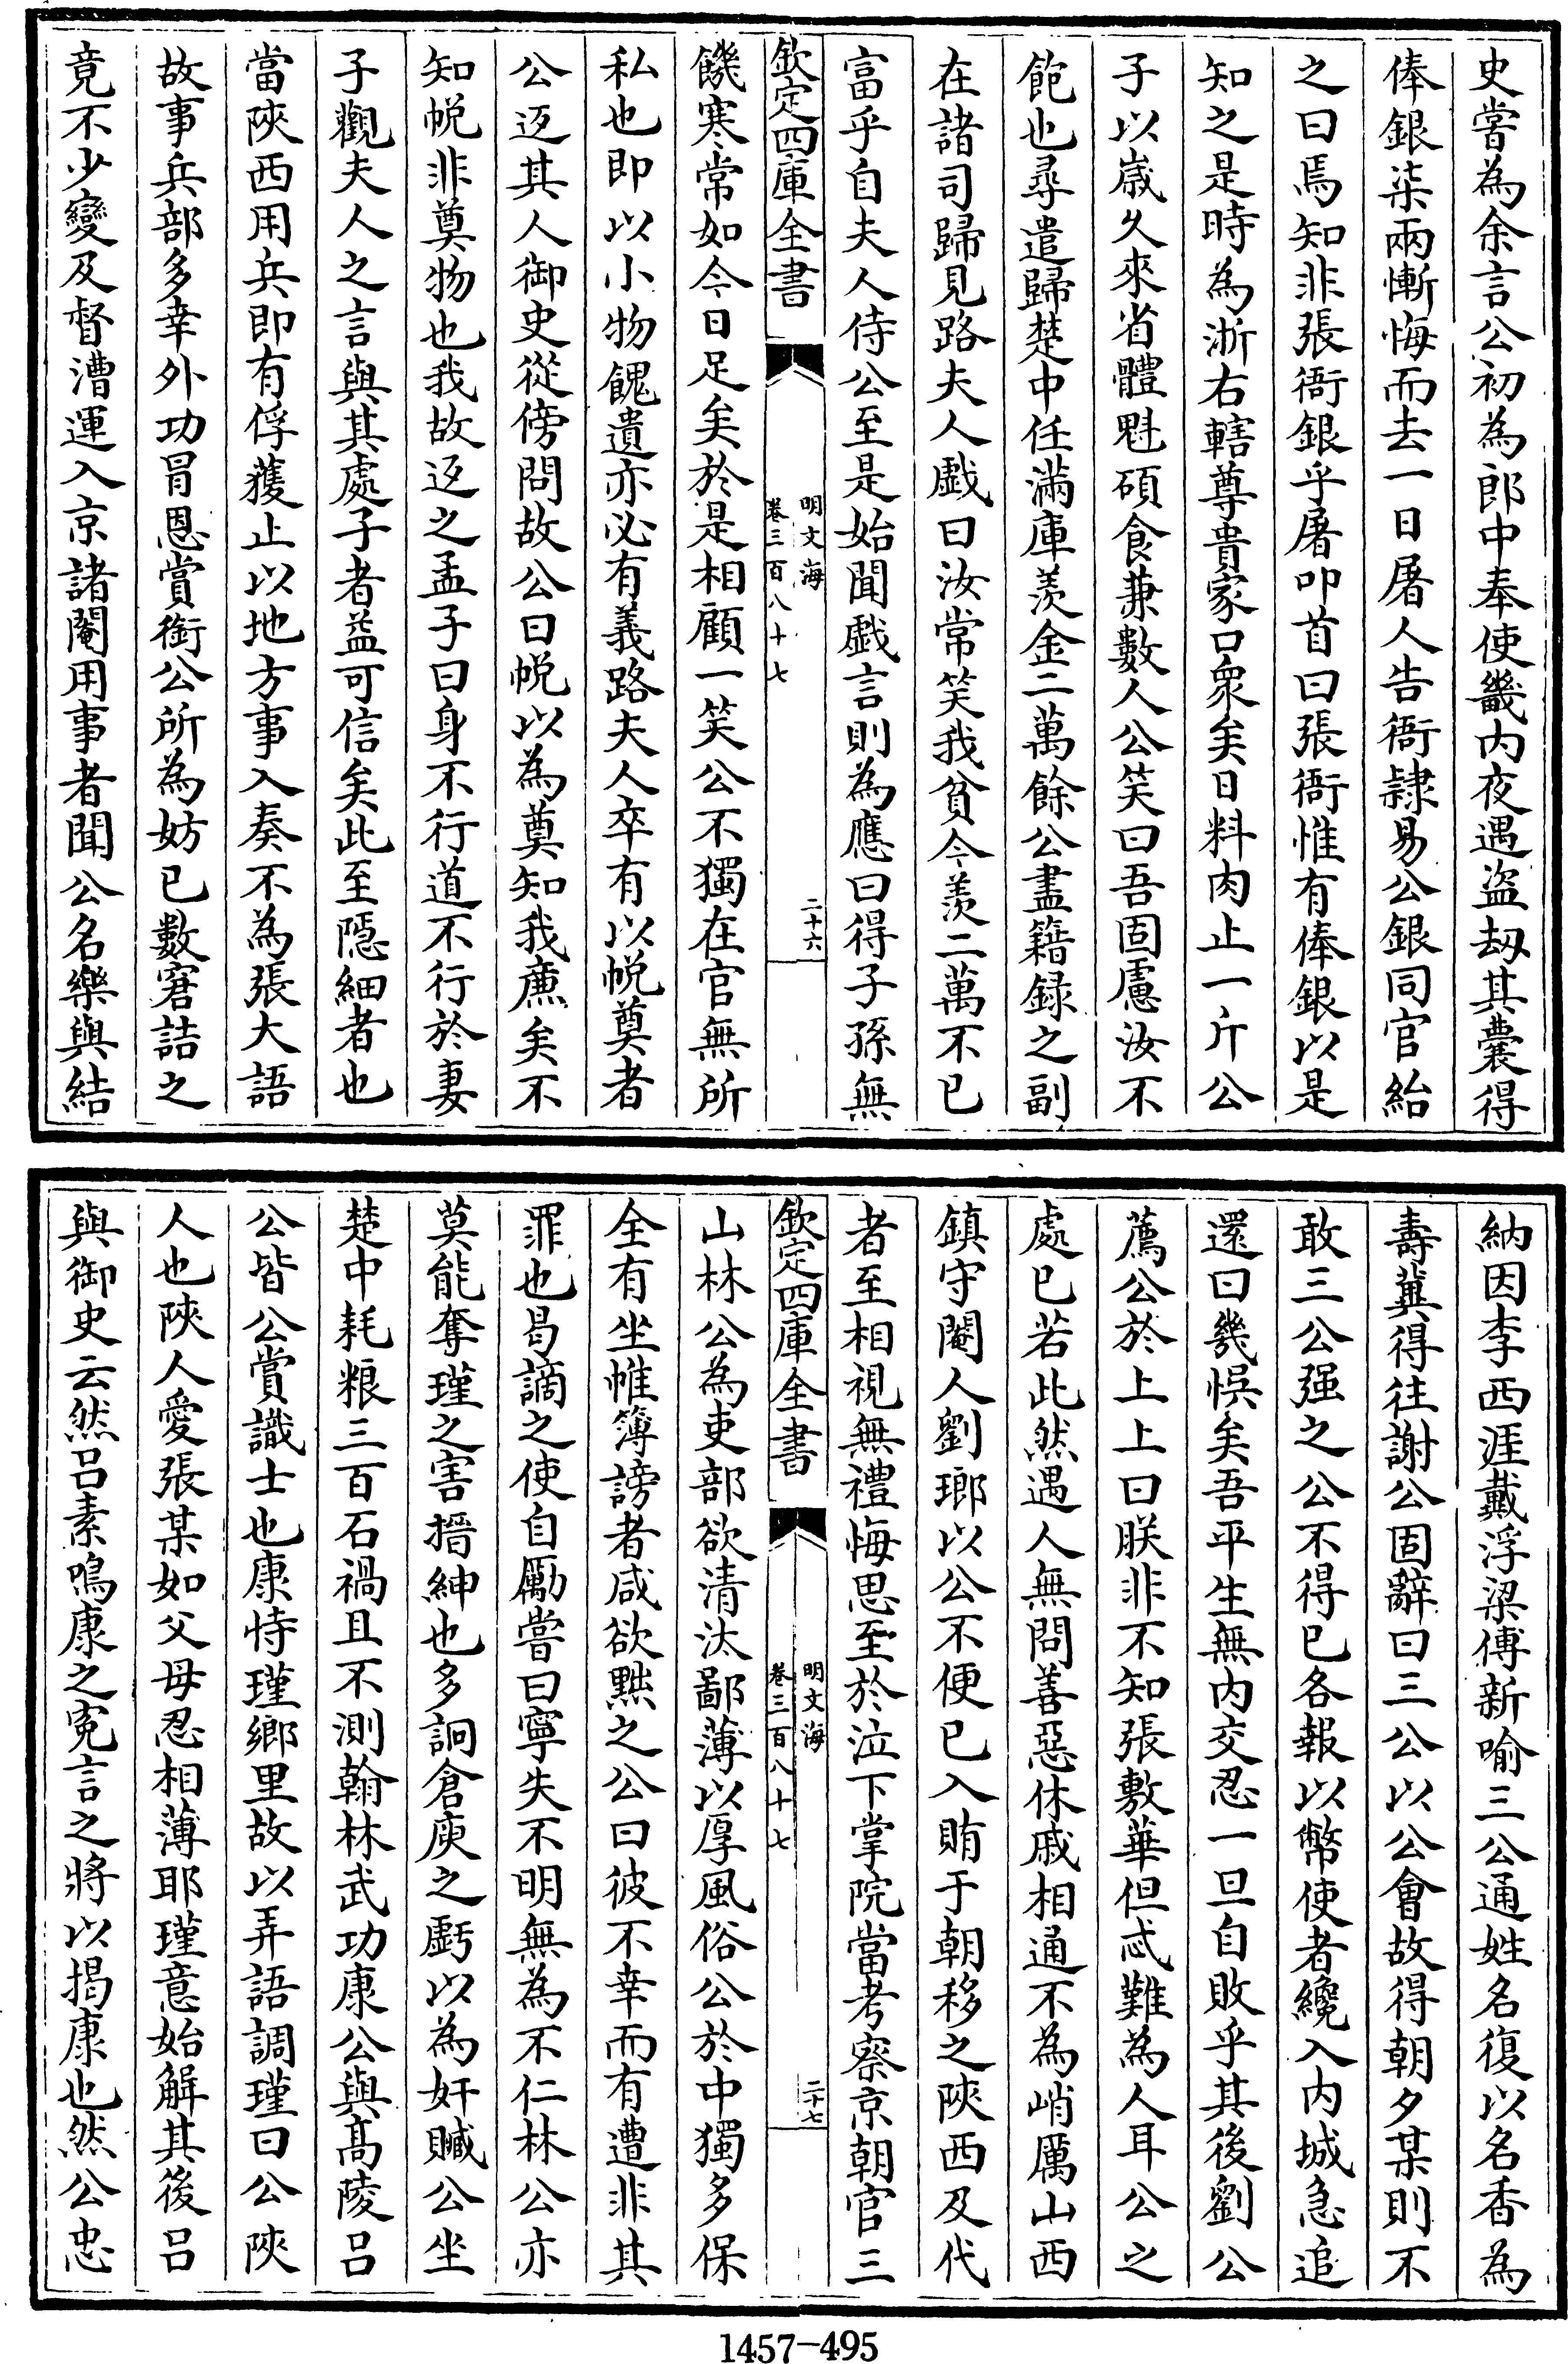 史嘗為余言公初為郎中奉使畿内夜遇盜刼其囊得
俸銀柒兩慚悔而去一日屠人告衙隸易公銀同官紿
之曰焉知非張衙銀乎屠叩首曰張衙惟有俸銀以是
知之是時為浙右轄尊貴家口衆矣日料肉止一斤公
子以嵗久來省體魁碩食兼數人公笑曰吾固慮汝不
飽也尋遣歸楚中任滿庫羡金二萬餘公盡籍録之副
在諸司歸見路夫人戲曰汝常笑我貧今羡二萬不已
富乎自夫人侍公至是始聞戲言則為應曰得子孫無
欽定四庫全書
明文海
卷三百八十七
二十六
饑寒常如今日足矣於是相顧一笑公不獨在官無所
私也即以小物餽遺亦必有義路夫人卒有以帨奠者
公返其人御史從傍問故公曰帨以為奠知我廉矣不
知帨非奠物也我故返之孟子曰身不行道不行於妻
子觀夫人之言與其處子者益可信矣此至隱細者也
當陜西用兵即有俘獲止以地方事入奏不為張大語
故事兵部多幸外功冒恩賞銜公所為妨已數窘詰之
竟不少變及督漕運入京諸閹用事者聞公名樂與結
納因李西涯戴浮梁傅新喻三公通姓名復以名香為
壽冀得往謝公固辭曰三公以公會故得朝夕某則不
敢三公强之公不得已各報以幣使者纔入内城急追
還曰幾悞矣吾平生無内交忍一旦自敗乎其後劉公
薦公於上上曰朕非不知張敷華但忒難為人耳公之
處已若此然遇人無問善惡休戚相通不為峭厲山西
鎮守閹人劉瑯以公不便已入賄于朝移之陜西及代
者至相視無禮悔思至於泣下掌院當考察京朝官三
欽定四庫全書
明文海
卷三百八十七
二十七
山林公為吏部欲清汰鄙薄以厚風俗公於中獨多保
全有坐帷簿謗者咸欲黜之公曰彼不幸而有遭非其
罪也曷謫之使自勵嘗曰寧失不明無為不仁林公亦
莫能奪瑾之害搢紳也多詗倉庾之虧以為奸贓公坐
楚中耗粮三百石禍且不測翰林武功康公與髙陵吕
公皆公賞識士也康恃瑾鄉里故以弄語調瑾曰公陜
人也陜人愛張某如父母忍相薄耶瑾意始解其後吕
與御史云然吕素鳴康之寃言之將以掲康也然公忠
1457-495